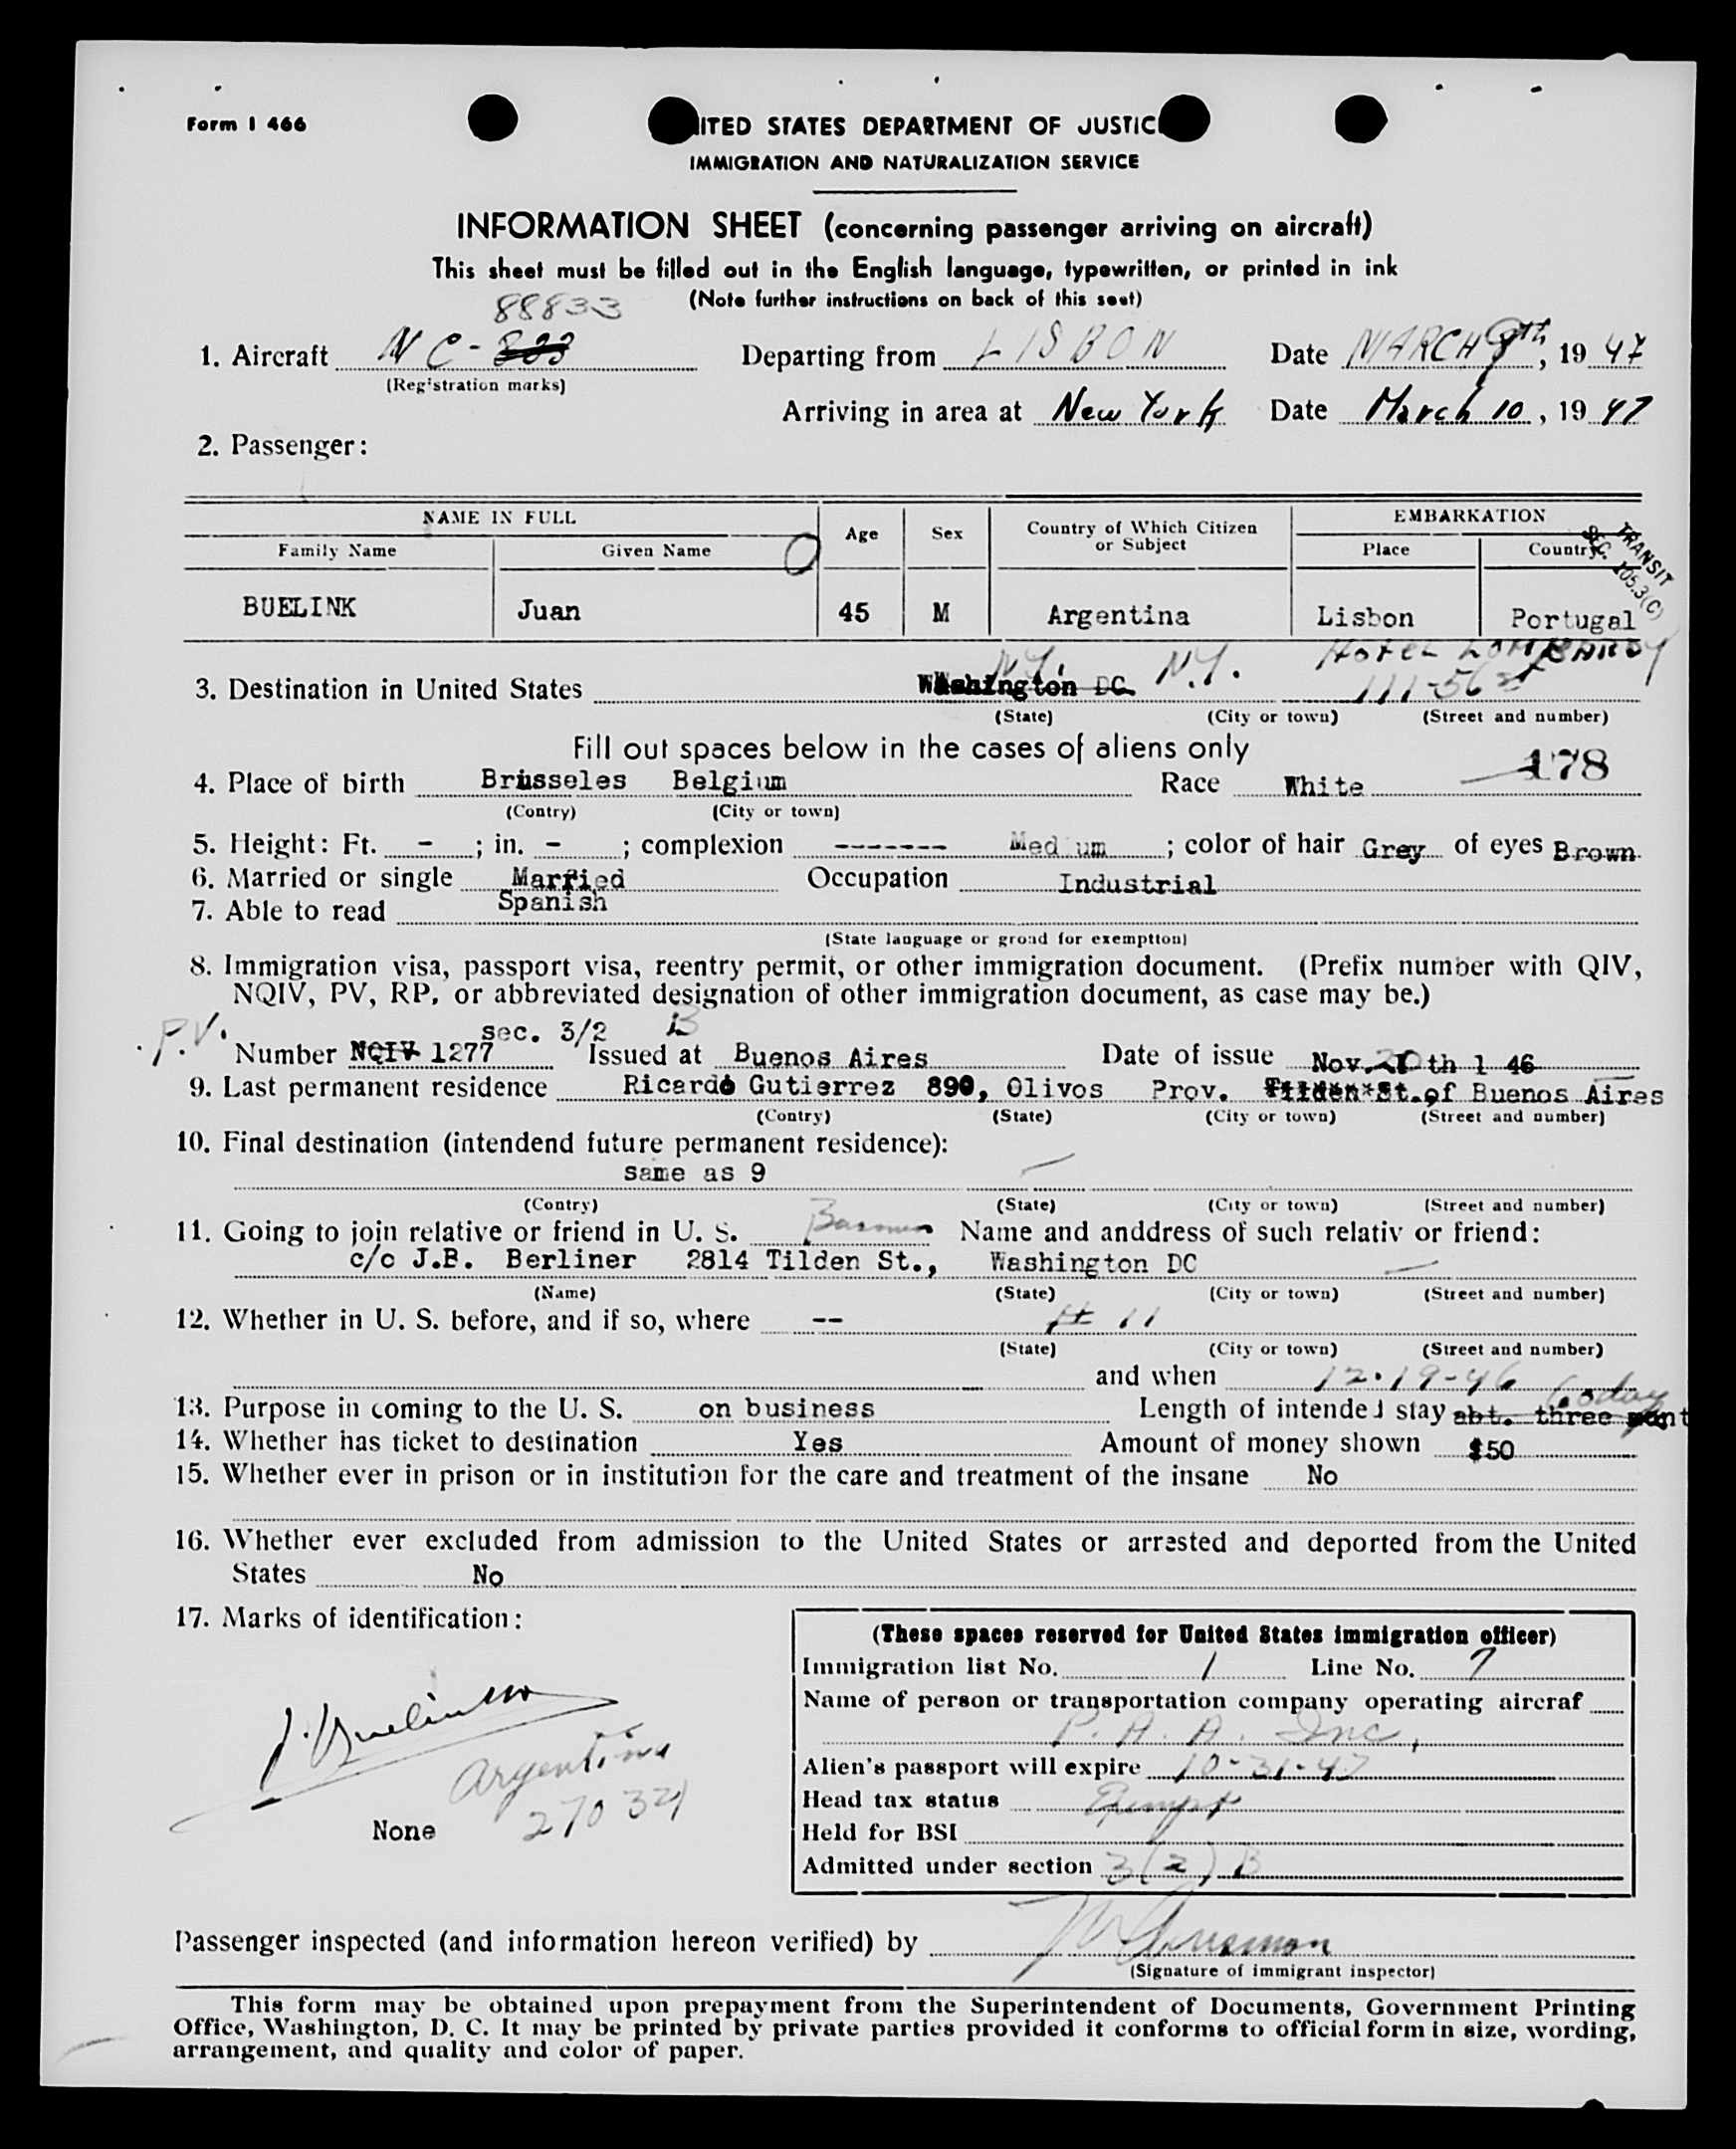 Form I 466
ITED STATES DEPARTMENT OF JUSTIC
IMMIGRATION AND NATURALIZATION SERVICE
INFORMATION SHEET (concerning passenger arriving on aircraft)
This sheet must be filled out in the English language, typewritten, or printed in ink
(Note further instructions on back of this seet)
88833
1. Aircraft NC-333 Departing from LISBON Date MARCH 8th, 19 47
(Registration marks)
Arriving in area at New York Date March 10, 19 47
2. Passenger:
NAME IN FULL Age Sex Country of Which Citizen or Subject EMBARKATION
Family Name Given Name Place Country
TRANSIT
SEC. 105.3(C)
BUELINK Juan 45 M Argentina Lisbon Portugal
N.Y. N.Y. HOTEL LOMBARDY
3. Destination in United States Washington DC. 111-56
(State) (City or town) (Street and number)
Fill out spaces below in the cases of aliens only
178
4. Place of birth Brusseles Belgium Race White
(Contry) (City or town)
5. Height: Ft. - ; in. - ; complexion ------- Medium ; color of hair Grey of eyes Brown
6. Married or single Married Occupation Industrial
7. Able to read Spanish
(State language or groud for exemption)
8. Immigration visa, passport visa, reentry permit, or other immigration document. (Prefix number with QIV,
NQIV, PV, RP, or abbreviated designation of other immigration document, as case may be.)
P.V. sec. 3/2 B
Number NQIV 1277 Issued at Buenos Aires Date of issue Nov. 20 th 1 46
9. Last permanent residence Ricardo Gutierrez 890, Olivos Prov. Tilden St. of Buenos Aires
(Contry) (State) (City or town) (Street and number)
10. Final destination (intendend future permanent residence):
same as 9
(Contry) (State) (City or town) (Street and number)
11. Going to join relative or friend in U. S. Name and anddress of such relativ or friend:
c/o J.B. Berliner 2814 Tilden St., Washington DC
(Name) (State) (City or town) (Street and number)
12. Whether in U. S. before, and if so, where -- # 11
(State) (City or town) (Street and number)
and when 12-19-46
60 days
13. Purpose in coming to the U. S. on business Length of intended stay abt. three mont
14. Whether has ticket to destination Yes Amount of money shown $50
15. Whether ever in prison or in institution for the care and treatment of the insane No
16. Whether ever excluded from admission to the United States or arrested and deported from the United
States No
17. Marks of identification:
J. Buelink
Argentina
270 321
None
(These spaces reserved for United States immigration officer)
Immigration list No. 1 Line No. 7
Name of person or transportation company operating aircraf
P. A. A. Inc,
Alien's passport will expire 10-31-47
Head tax status Exempt
Held for BSI
Admitted under section 3(2)B
Passenger inspected (and information hereon verified) by
(Signature of immigrant inspector)
This form may be obtained upon prepayment from the Superintendent of Documents, Government Printing
Office, Washington, D. C. It may be printed by private parties provided it conforms to official form in size, wording,
arrangement, and quality and color of paper.